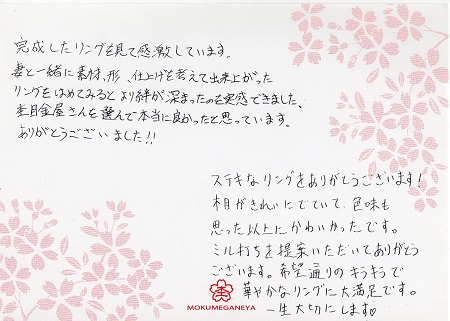 完成したリングを見て感激しています。
妻と一緒に素材、形、仕上げを考えて出来上がった
リングをはめてみると より絆が深まったのを実感できました、
杢目金屋さんを選んで本当に良かったと思っています。
ありがとうございました!!
ステキなリングをありがとうございます!
木目がきれいにでていて、色味も
思った以上にかわいかったです。
ミル打ちを提案いただいてありがとう
ございます。希望通りのキラキラで
華やかなリングに大満足です。
一生大切にします♡
MOKUMEGANEYA